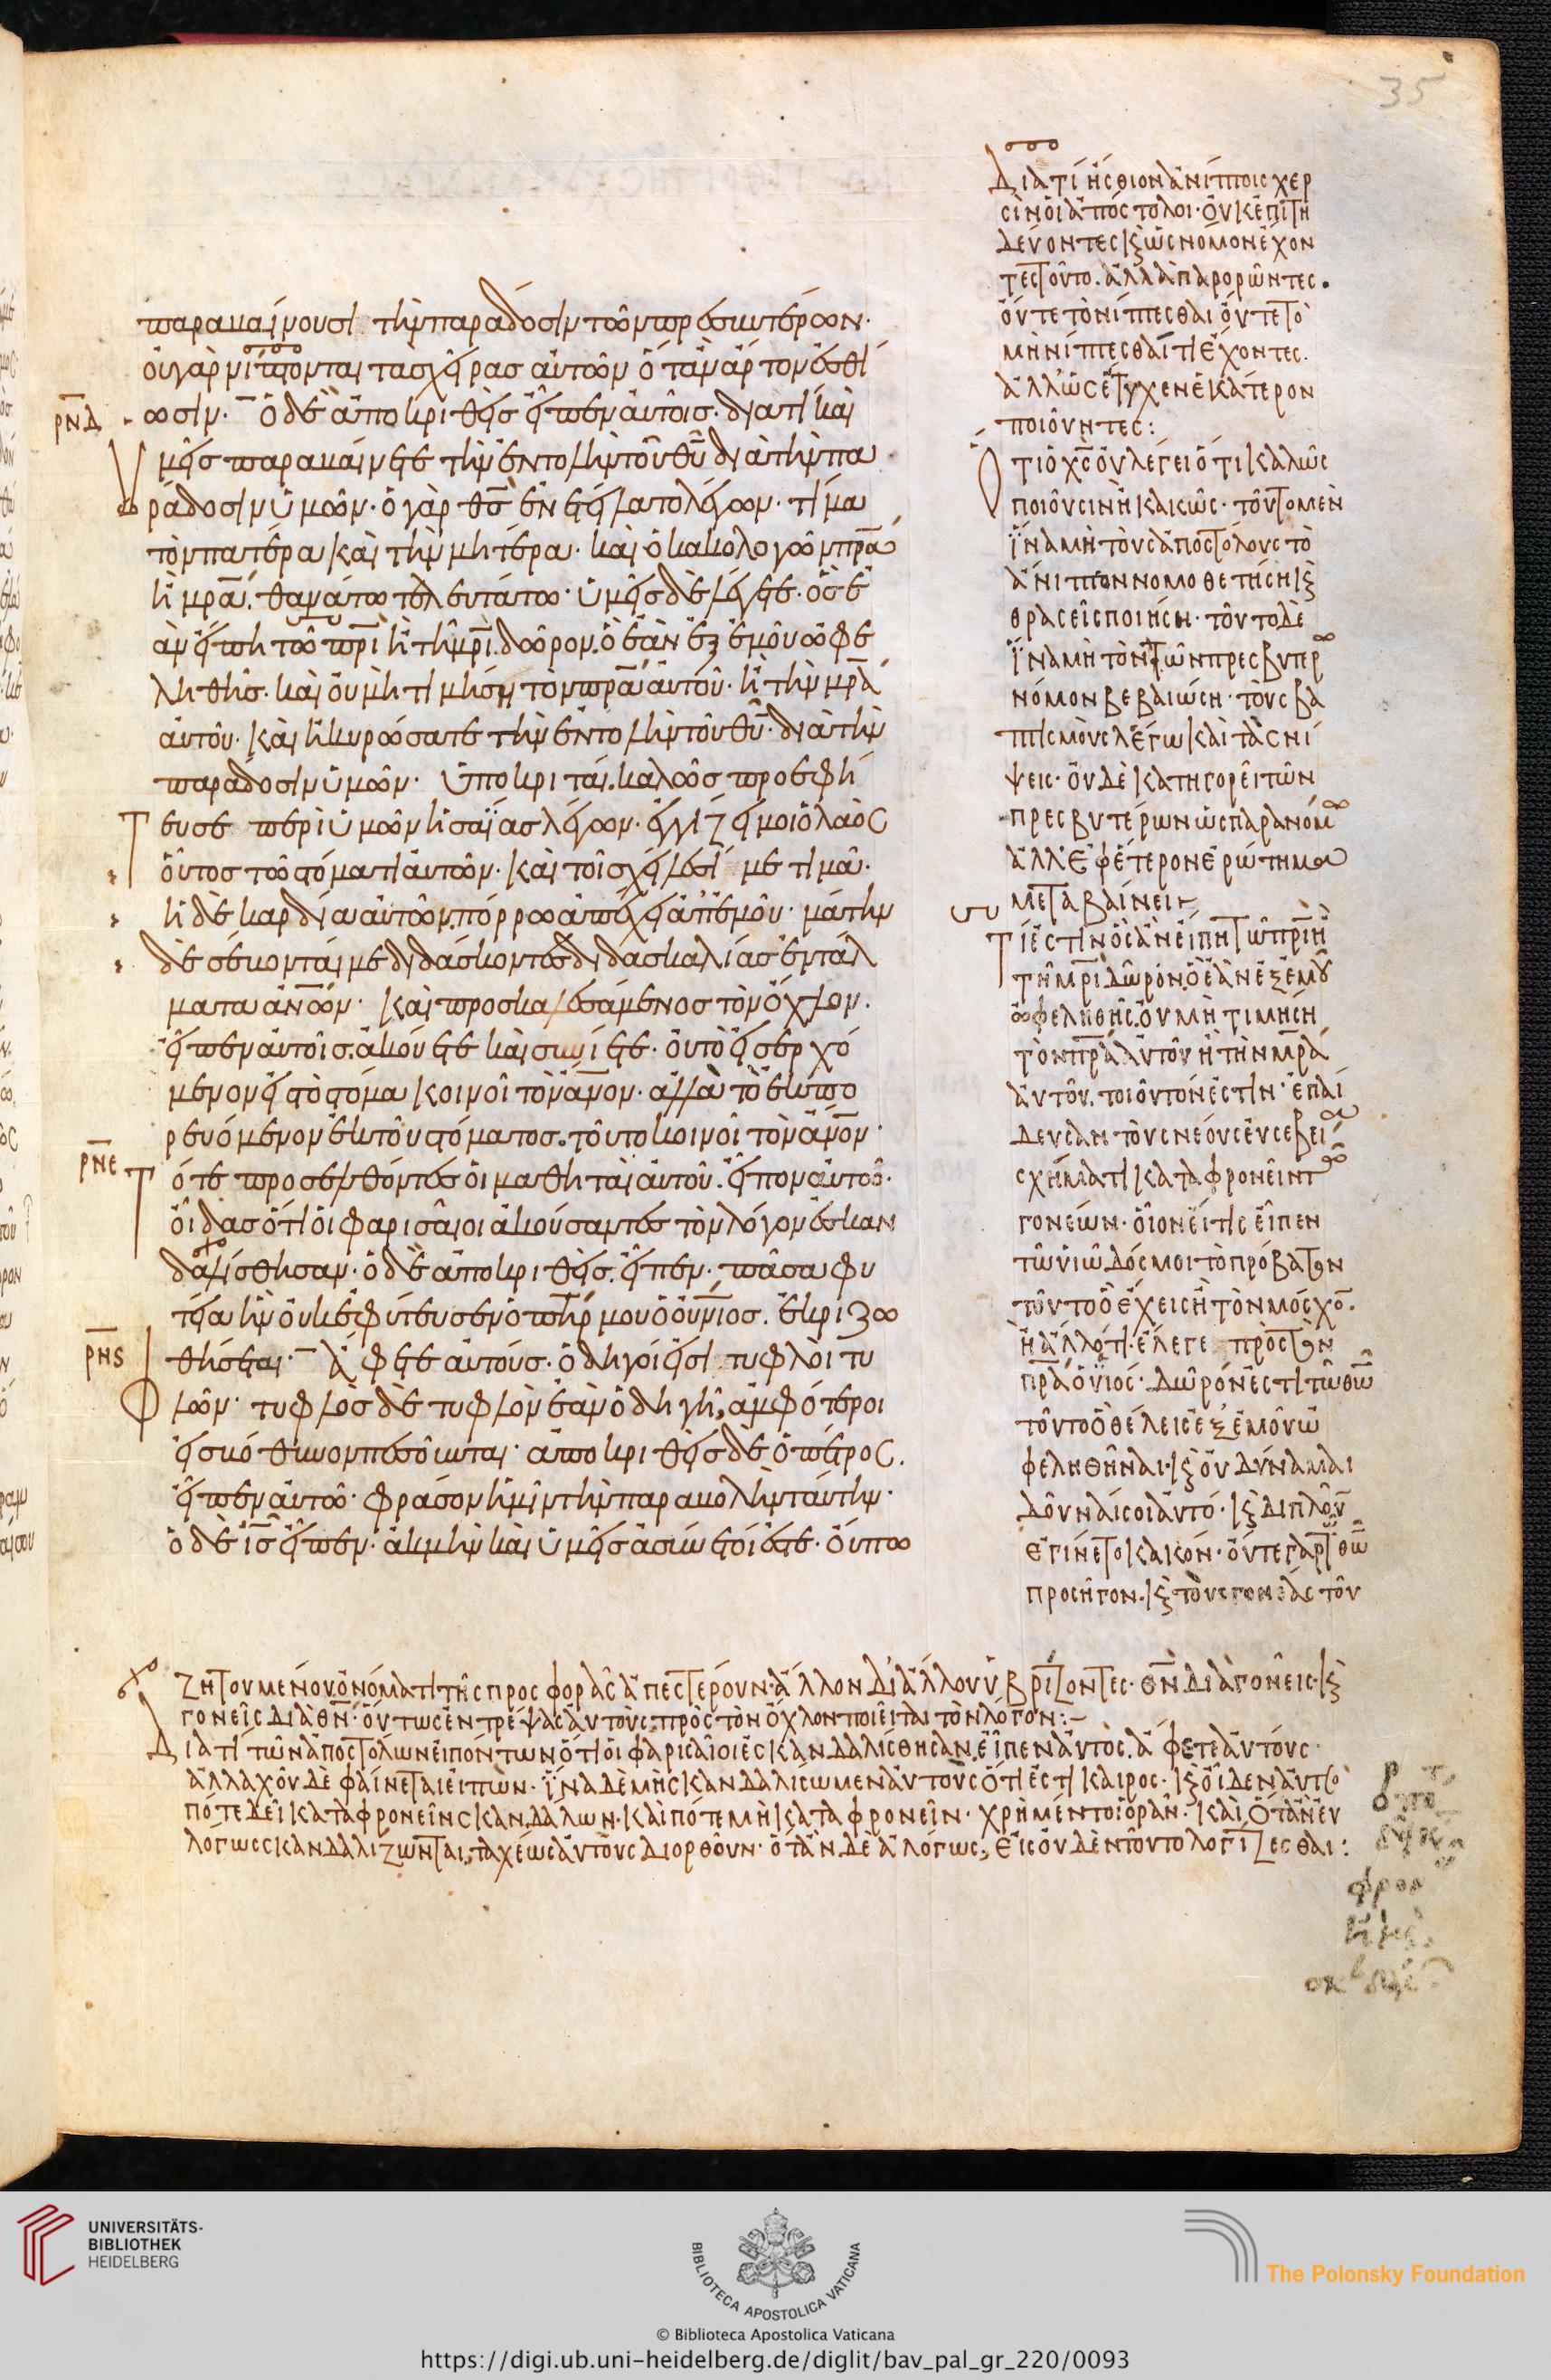 35
παραβαίνουσι τὴν παράδοσιν τῶν πρεσβυτέρων·
οὐ γὰρ νίπτονται τὰς χεῖρας αὐτῶν ὅταν ἄρτον ἐσθί
ρνδ ωσιν· ὁ δὲ ἀποκριθεὶς εἶπεν αὐτοῖς· διατί καὶ
ὑμεῖς παραβαίνετε τὴν ἐντολὴν τοῦ θῦ διὰ τὴν πα
ράδοσιν ὑμῶν· ὁ γὰρ θς ἐνετείλατο λέγων· τίμα
τὸν πατέρα καὶ τὴν μητέρα· καὶ ὁ κακολογῶν πρα
ἢ μρα· θανάτω τελευτάτω· ὑμεῖς δὲ λέγετε· ὃς ἐ
ὰν εἴπη τῶ πρι ἢ τῆ μρι· δῶρον ὃ ἐὰν ἐξ ἐμοῦ ὠφε
ληθῆς· καὶ οὐ μὴ τιμήση τὸν πρα αὐτοῦ· ἢ τὴν μρα
αὐτοῦ· καὶ ἠκυρώσατε τὴν ἐντολὴν τοῦ θῦ· διὰ τὴν
παράδοσιν ὑμῶν· ὑποκριταί· καλῶς προεφή
τευσε περὶ ὑμῶν ἡσαΐας λέγων· ἐγγίζει μοι ὁ λαὸς
οὗτος τῶ στόματι αὐτῶν· καὶ τοῖς χείλεσί με τιμᾶ·
ἡ δὲ καρδία αὐτῶν πόρρω ἀπέχει ἀπ' ἐμοῦ· μάτην
δὲ σέβονταί με διδάσκοντες διδασκαλίας ἐντάλ
ματα ἀνων· καὶ προσκαλεσάμενος τὸν ὄχλον·
εἶπεν αὐτοῖς· ἀκούετε καὶ συνίετε· οὐ τὸ εἰσερχό
μενον εἰς τὸ στόμα κοινοῖ τὸν ανον· ἀλλὰ τὸ ἐκπο
ρευόμενον ἐκ τοῦ στόματος· τοῦτο κοινοῖ τὸν ανον·
ρνε Τότε προσελθόντες οἱ μαθηταὶ αὐτοῦ· εἶπον αὐτῶ·
οἶδας ὅτι οἱ φαρισαῖοι ἀκούσαντες τὸν λόγον ἐσκαν
δαλίσθησαν· ὁ δὲ ἀποκριθεὶς εἶπεν· πᾶσα φυ
τεία ἣν οὐκ ἐφύτευσεν ὁ πηρ μου ὁ οὐνιος· ἐκριζω
ρνς θήσεται· ἄφετε αὐτούς· ὁδηγοί εἰσι τυφλοὶ τυ
φλῶν· τυφλὸς δὲ τυφλὸν ἐὰν ὁδηγῆ, ἀμφότεροι
εἰς βόθυνον πεσοῦνται· ἀποκριθεὶς δὲ ὁ πέτρος·
εἶπεν αὐτῶ· φράσον ἡμῖν τὴν παραβολὴν ταύτην·
ὁ δὲ ις εἶπεν· ἀκμὴν καὶ ὑμεῖς ἀσύνετοί ἐστε· οὔπω
Διατί ἤσθιον ἀνίπτοις χερ
σὶν οἱ ἀπόστολοι· οὐκ ἐπιτη
δεύοντες καὶ ὡς νόμον ἔχον
τες τοῦτο· ἀλλὰ παρορῶντες·
οὔτε τὸ νίπτεσθαι οὔτε τὸ
μὴ νίπτεσθαί τι ἔχοντες·
ἀλλ' ὡς ἔτυχεν ἑκάτερον
ποιοῦντες:
Τί ὁ χς οὐ λέγει ὅτι καλῶς
ποιοῦσιν ἢ κακῶς· τοῦτο μὲν
ἵνα μὴ τοὺς ἀποστόλους τὸ
ἄνιπτον νομοθετήση καὶ
θρασεῖς ποιήση· τοῦτο δὲ
ἵνα μὴ τὸν τῶν πρεσβυτερ
νόμον βεβαιώση· τοὺς βα
πτισμοὺς λέγω καὶ τὰς νί
ψεις· οὐδὲ κατηγορεῖ τῶν
πρεσβυτέρων ὡς παρανόμ
ἀλλ' ἐφ' ἕτερον ἐρώτημα
μεταβαίνει
Τί ἐστιν ὃς ἂν εἴπη τῶ πρι ἢ
τῆ μρι δῶρον ὃ ἐὰν ἐξ ἐμοῦ
ὠφεληθῆς· οὐ μὴ τιμήση
τὸν πρα αὐτοῦ ἢ τὴν μρα
αὐτοῦ· τοιοῦτόν ἐστιν· ἐπαί
δευσαν τοὺς νέους εὐσεβεί
σχήματι καταφρονεῖν τ
γονέων· οἷον εἴ τις εἶπεν
τῶ υἱῶ δός μοι τὸ πρόβατον
τοῦτο ὃ ἔχεις ἢ τὸν μόσχο·
ἢ ἄλλό τι· ἔλεγε πρὸς τὸν
πρα ὁ υἱός· δῶρόν ἐστι τῶ θω
τοῦτο ὃ θέλεις ἐξ ἐμοῦ ὠ
φεληθῆναι· καὶ οὐ δύναμαι
δοῦναί σοι αὐτό· καὶ διπλοῦν
ἐγίνετο κακόν· οὔτε γὰρ τ θω
προσῆγον· καὶ τοὺς γονέας τοῦ
ζητουμένου ὀνόματι τῆς προσφορᾶς ἀπεστέρουν· ἄλλον δι' ἄλλου ὑβρίζοντες· θν διὰ γονεῖς· καὶ
γονεῖς διὰ θν· οὕτως ἐντρέψας αὐτοὺς, πρὸς τὸν ὄχλον ποιεῖται τὸν λόγον:
Διατί τῶν ἀποστόλων εἰπόντων ὅτι οἱ φαρισαῖοι ἐσκανδαλίσθησαν, εἶπεν αὐτός· ἄφετε αὐτούς·
ἀλλαχοῦ δὲ φαίνεται εἰπών· ἵνα δὲ μὴ σκανδαλίσωμεν αὐτοὺς ὅτι ἐστι καιρος· καὶ οἶδεν αὐτὸ
πότε δεῖ καταφρονεῖν σκανδάλων· καὶ πότε μὴ καταφρονεῖν· χρὴ μέντοι ὁρᾶν· καὶ ὅταν εὐ
λόγως σκανδαλίζωνται, ταχέως αὐτοὺς διορθοῦν· ὅταν δὲ ἀλόγως, εἰς οὐδὲν τοῦτο λογίζεσθαι:
UNIVERSITÄTS-
BIBLIOTHEK
HEIDELBERG
BIBLIOTECA APOSTOLICA VATICANA
The Polonsky Foundation
© Biblioteca Apostolica Vaticana
https://digi.ub.uni-heidelberg.de/diglit/bav_pal_gr_220/0093